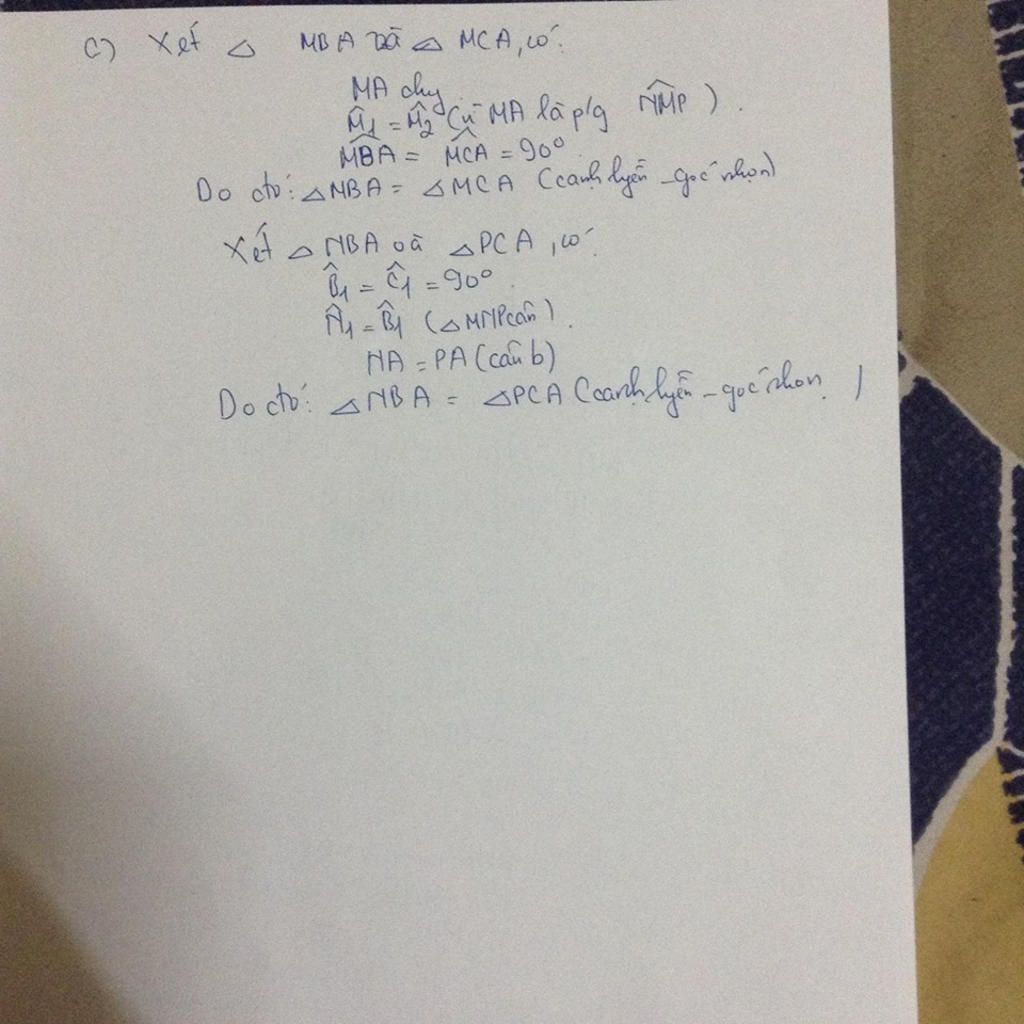 c) Xét △ MBA và △ MCA, có:
MA chg
M̂1 = M̂2 (vì MA là p/g N̂MP).
M̂BA = M̂CA = 90°
Do đó: △MBA = △MCA (cạnh huyền - góc nhọn)
Xét △ NBA và △PCA, có:
B̂1 = Ĉ1 = 90°.
N̂1 = B̂1 (△MNP cân).
NA = PA (câu b)
Do đó: △NBA = △PCA (cạnh huyền - góc nhọn)